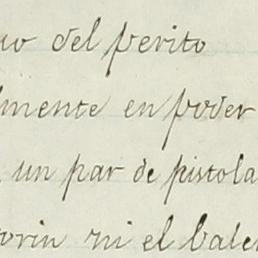 del perito
mente en poder
un par de pistola
orin ni el Cale